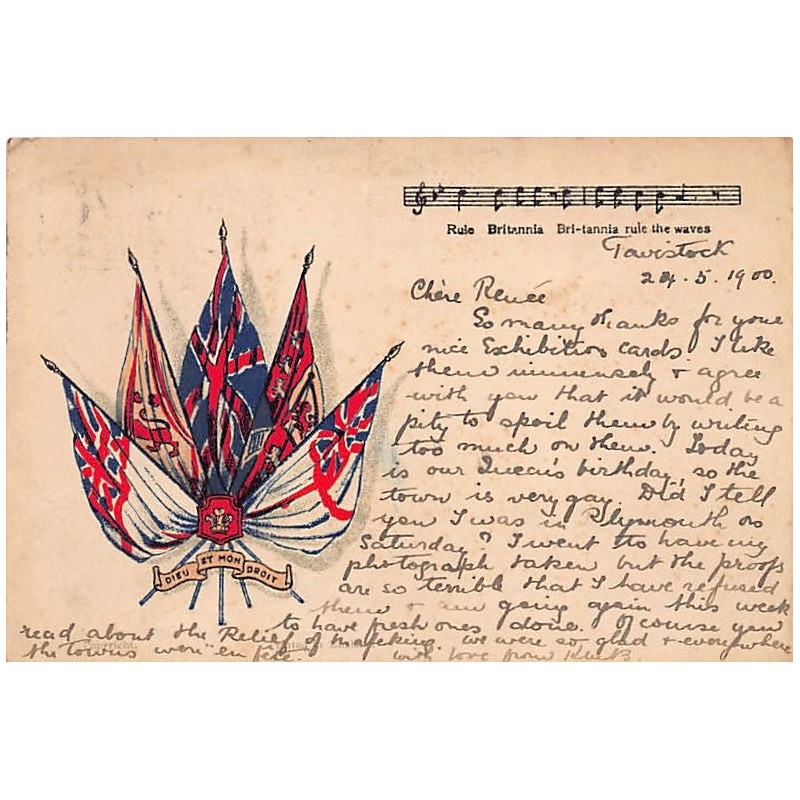 Rule Britannia Bri-tannia rule the waves
Tavistock
24.5.1900.
Chère Renée
So many thanks for your
nice Exhibition cards. I like
them immensely & agree
with you that it would be a
pity to spoil them by writing
too much on them. Today
is our Queen's birthday, so the
town is very gay. Did I tell
you I was in Plymouth on
Saturday? I went to have my
photograph taken but the proofs
are so terrible that I have refused
them & am going again this week
to have fresh ones done. Of course you
read about the Relief of Mafeking. We were so glad & everywhere
the towns were "en fête.
with love from
DIEU ET MON DROIT
Copyright.